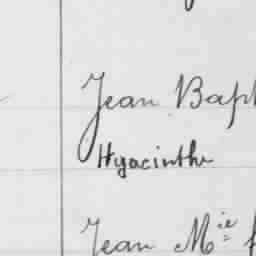 Jean Bapt
Hyacinthe
Jean M.ie